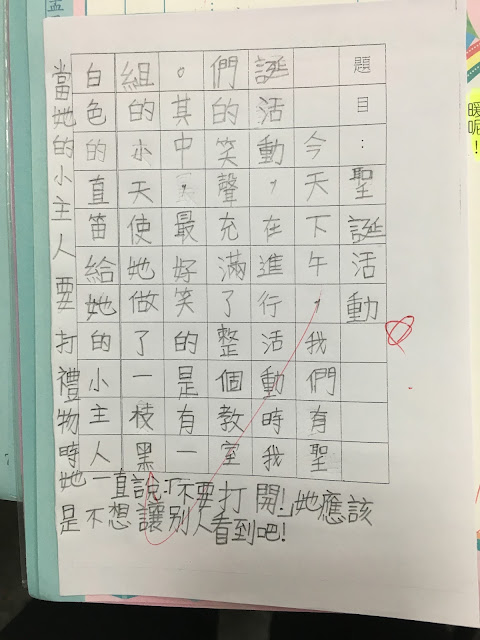 題目：聖誕活動
今天下午，我們有聖
誕活動，在進行活動時我
們的笑聲充滿了整個教室
。其中最好笑的是有一
組的小天使她做了一枝黑
白色的直笛給她的小主人
當她的小主人要打禮物時
她一直說：「不要打開！」她應該
是不想讓別人看到吧！
暖呢！